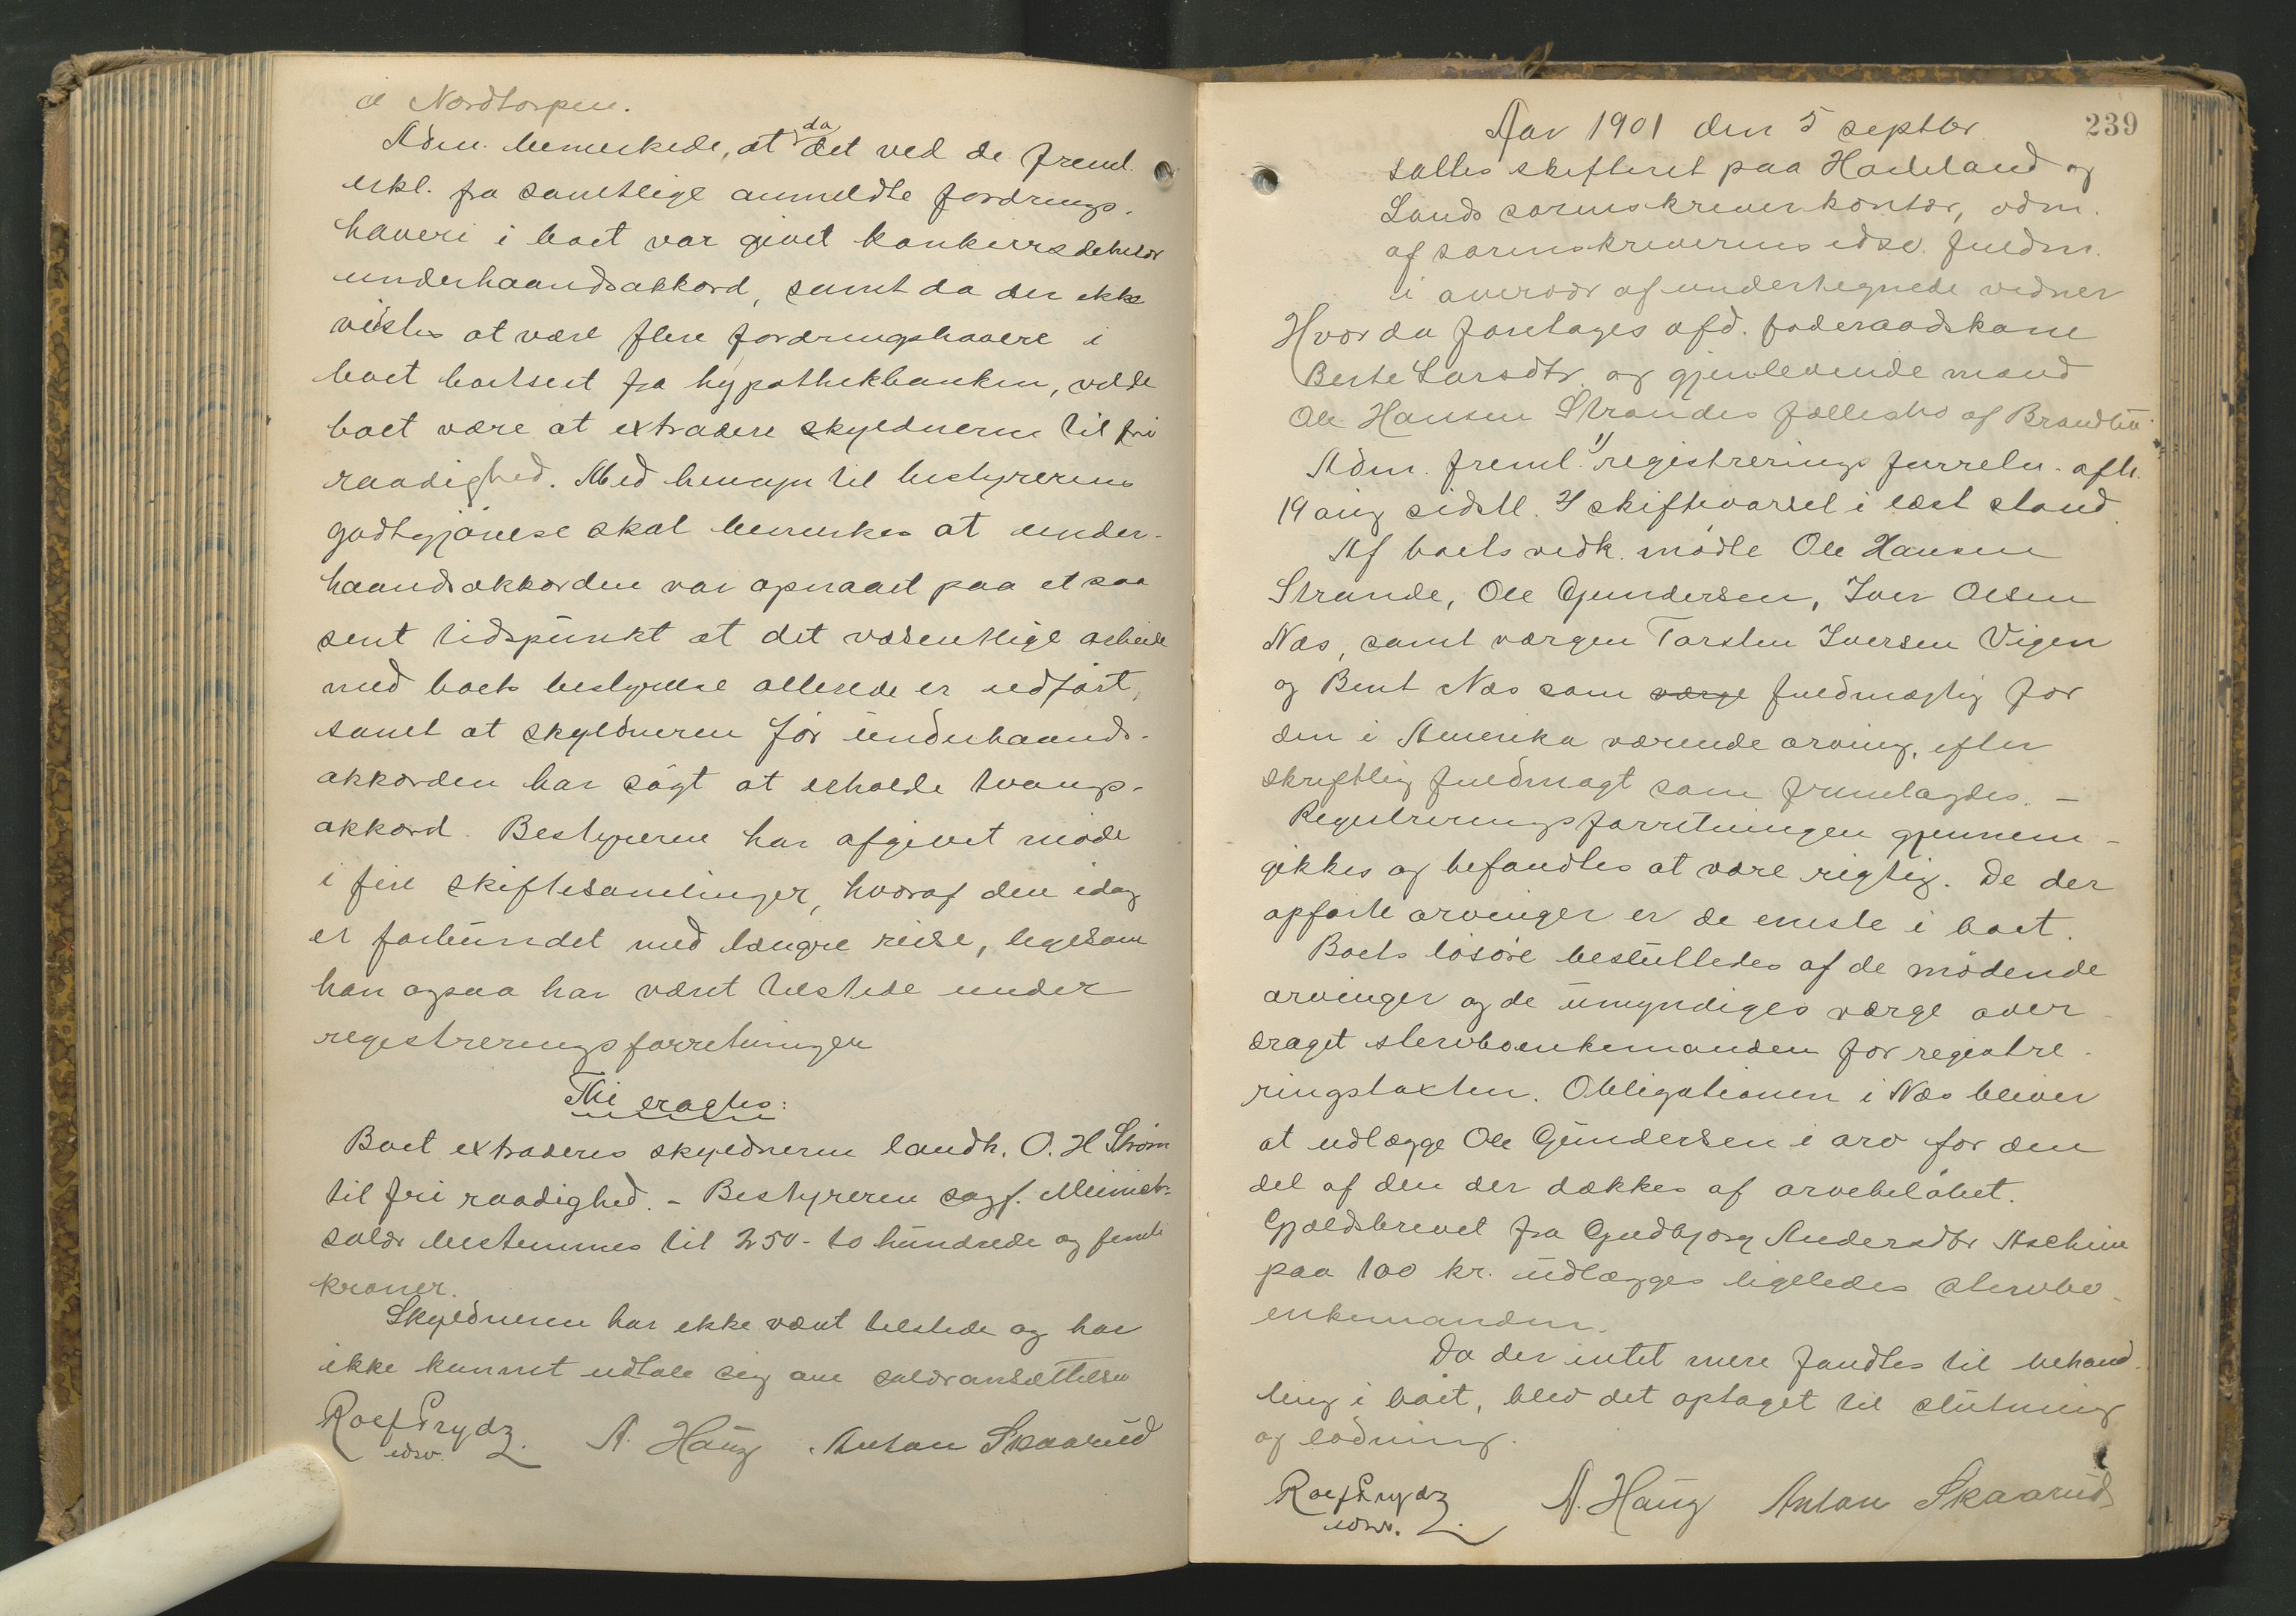 a Nordtorpen.
Adm. bemerkede, at da det ved de freml.
erkl. fra samtlige anmeldte fordrings-
havere i boet var givet konkursdebitor
underhaandsakkord, samt da der ikke
vistes at være flere fordringshavere i
boet bortseet fra hypothekbanken, vilde
boet være at extradere skyldneren til fri
raadighed. Med hensyn til bestyrerens
godtgjørelse skal bemerkes at under-
haandsakkorden var opnaaet paa et saa
sent tidspunkt at det væsentlige arbeide
med boets bestyrelse allerede er udført,
samt at skyldneren før underhaands-
akkorden har søgt at erholde tvangs-
akkord. Bestyreren har afgivet møde
i fire skiftesamlinger, hvoraf den idag
er forbundet med længre reise, ligesom
han ogsaa har været tilstede under
registreringsforretningen
Thi eragtes:
Boet extraderes skyldneren landh. O. H. Strøm
til fri raadighed. - Bestyreren sagf.
salær bestemmes til 250 - to hundrede og femti
kroner.
Skyldneren har ikke været tilstede og har
ikke kunnet udtale sig om salæransættelsen
Rolf Prydz
edsv. A. Haug Anton Skaarud
239
Aar 1901 den 5 septbr
sattes skifteret paa Hadeland og
Lands sorenskriverkontor, adm.
af sorenskriverens edsv. fuldm.
i overvær af undertegnede vidner
Hvorda foretages afd. føderaadskone
Berte Larsdtr. og gjenlevende mand
Ole Hansen Strandes fællesbo af Brandbu.
Adm. freml. 1/ registrerings forretn. afh.
19 aug sidstl. 2/ skiftevarsel i læst stand.
Af boets vedk. mødte Ole Hansen
Strande, Ole Gundersen, Iver Olsen
Næs, samt værgen Torsten Iversen Vigen
og Bent Næs som værge fuldmægtig for
den i Amerika værende arving, efter
skriftlig fuldmagt som fremlagdes. -
Registreringsforretningen gjennem-
gikkes og befandtes at være rigtig. De der
opførte arvinger er de eneste i boet.
Boets løsøre besluttedes af de mødende
arvinger og de umyndiges værge over-
draget stervboenkemanden for registre-
ringstaxten. Obligationen i Næs bliver
at udlægge Ole Gundersen i arv for den
del af den der dækkes af arvebeløbet.
Gjældsbrevet fra Gudbjørg Andersdtr Aschim
paa 100 kr. udlægges ligeledes stervbo-
enkemanden.
Da der intet mere fandtes til behand-
ling i boet, blev det optaget til slutning
og lodning.
Rolf Prydz
edsv. A. Haug Anton Skaarud